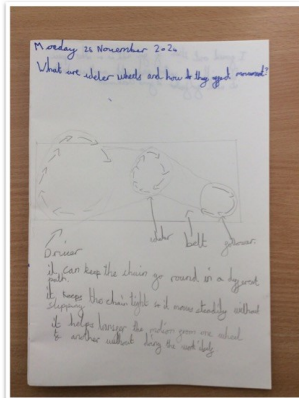 Monday 24 November 2024
What are idler wheels and how do they affect movement?
idler
belt
follower
Driver
it can keep the chain go round in a different
path
it keeps the chain tight so it moves steadily without
slipping
it helps transfer the motion from one wheel
to another without doing the work itself